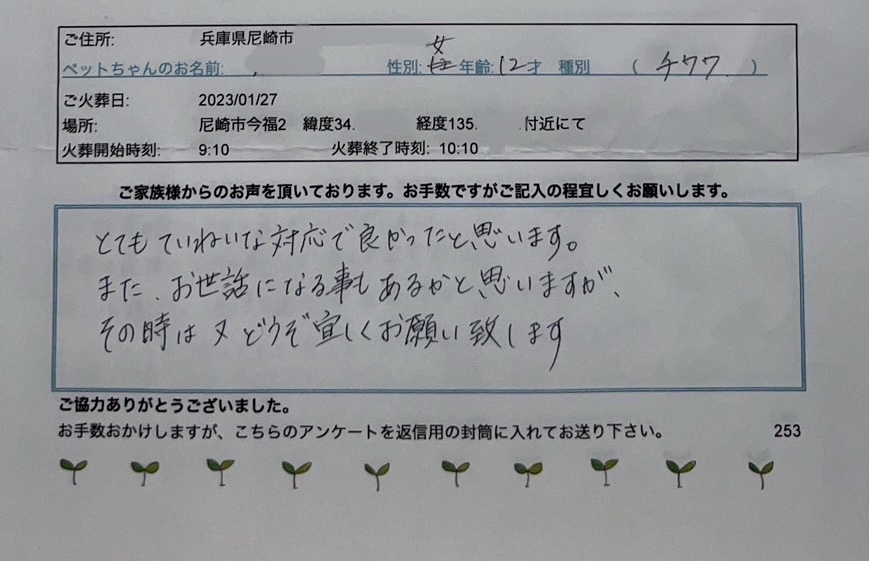 ご住所: 兵庫県尼崎市
ペットちゃんのお名前: 性別: 女 年齢: 12才 種別 ( チワワ )
ご火葬日: 2023/01/27
場所: 尼崎市今福2 緯度34. 経度135. 付近にて
火葬開始時刻: 9:10 火葬終了時刻: 10:10
ご家族様からのお声を頂いております。お手数ですがご記入の程宜しくお願いします。
とてもていねいな対応で良かったと思います。
また、お世話になる事もあるかと思いますが、
その時は又どうぞ宜しくお願い致します
ご協力ありがとうございました。
お手数おかけしますが、こちらのアンケートを返信用の封筒に入れてお送り下さい。 253